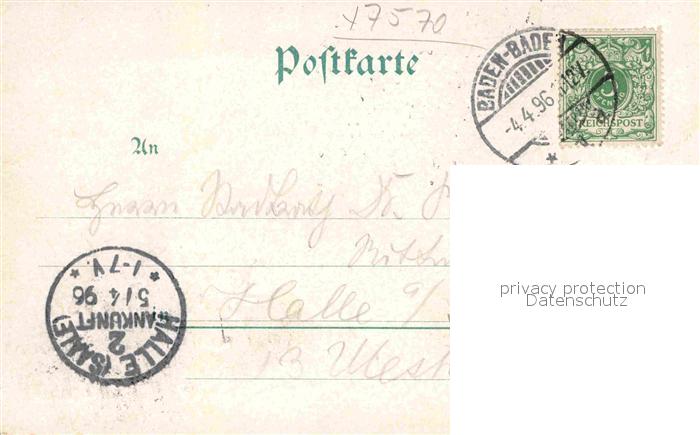 x7570
Postkarte
BADEN-BADEN
-4.4.96.
REICHSPOST
An
Herrn Stadtrath Dr.
Halle a/
13 West
HALLE (SAALE)
2
ANKUNFT
5/4 96
1-7V
privacy protection
Datenschutz